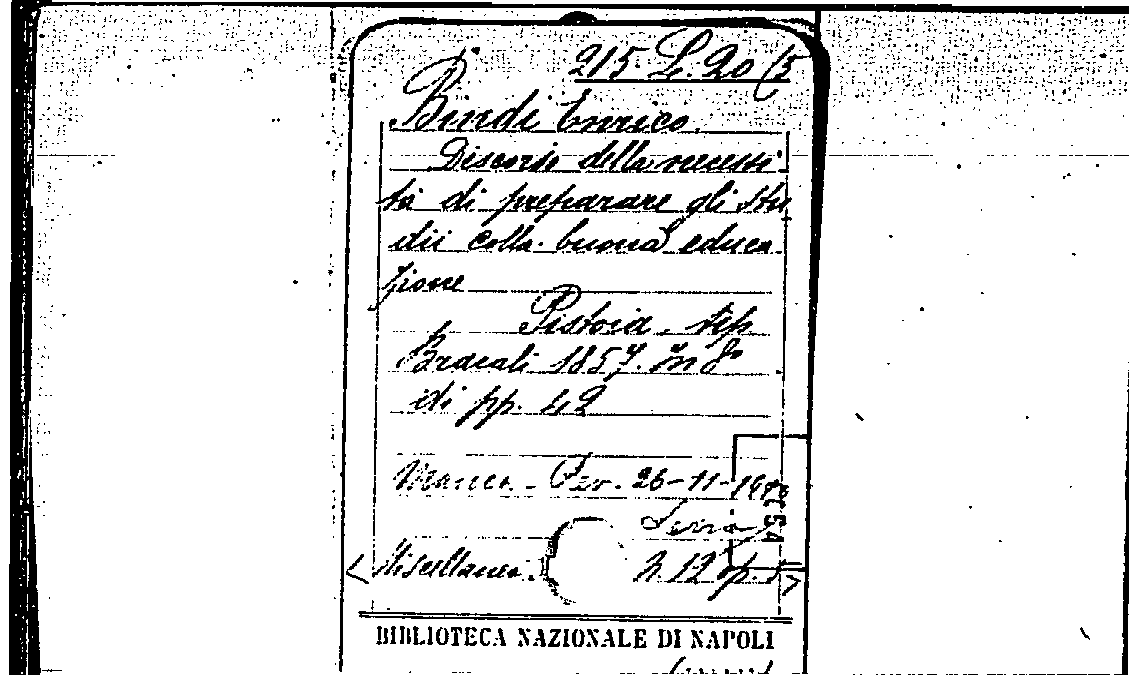 215 L. 20 (5
Bindi Enrico.
Discorso della necessi-
tà di preparare gli stu
dii colla buona educa
zione
Pistoia. tip
Bracali 1857. in 8º
di pp. 42
Manca. Rev. 26-11-
Miscellanea. n. 12 op.
BIBLIOTECA NAZIONALE DI NAPOLI